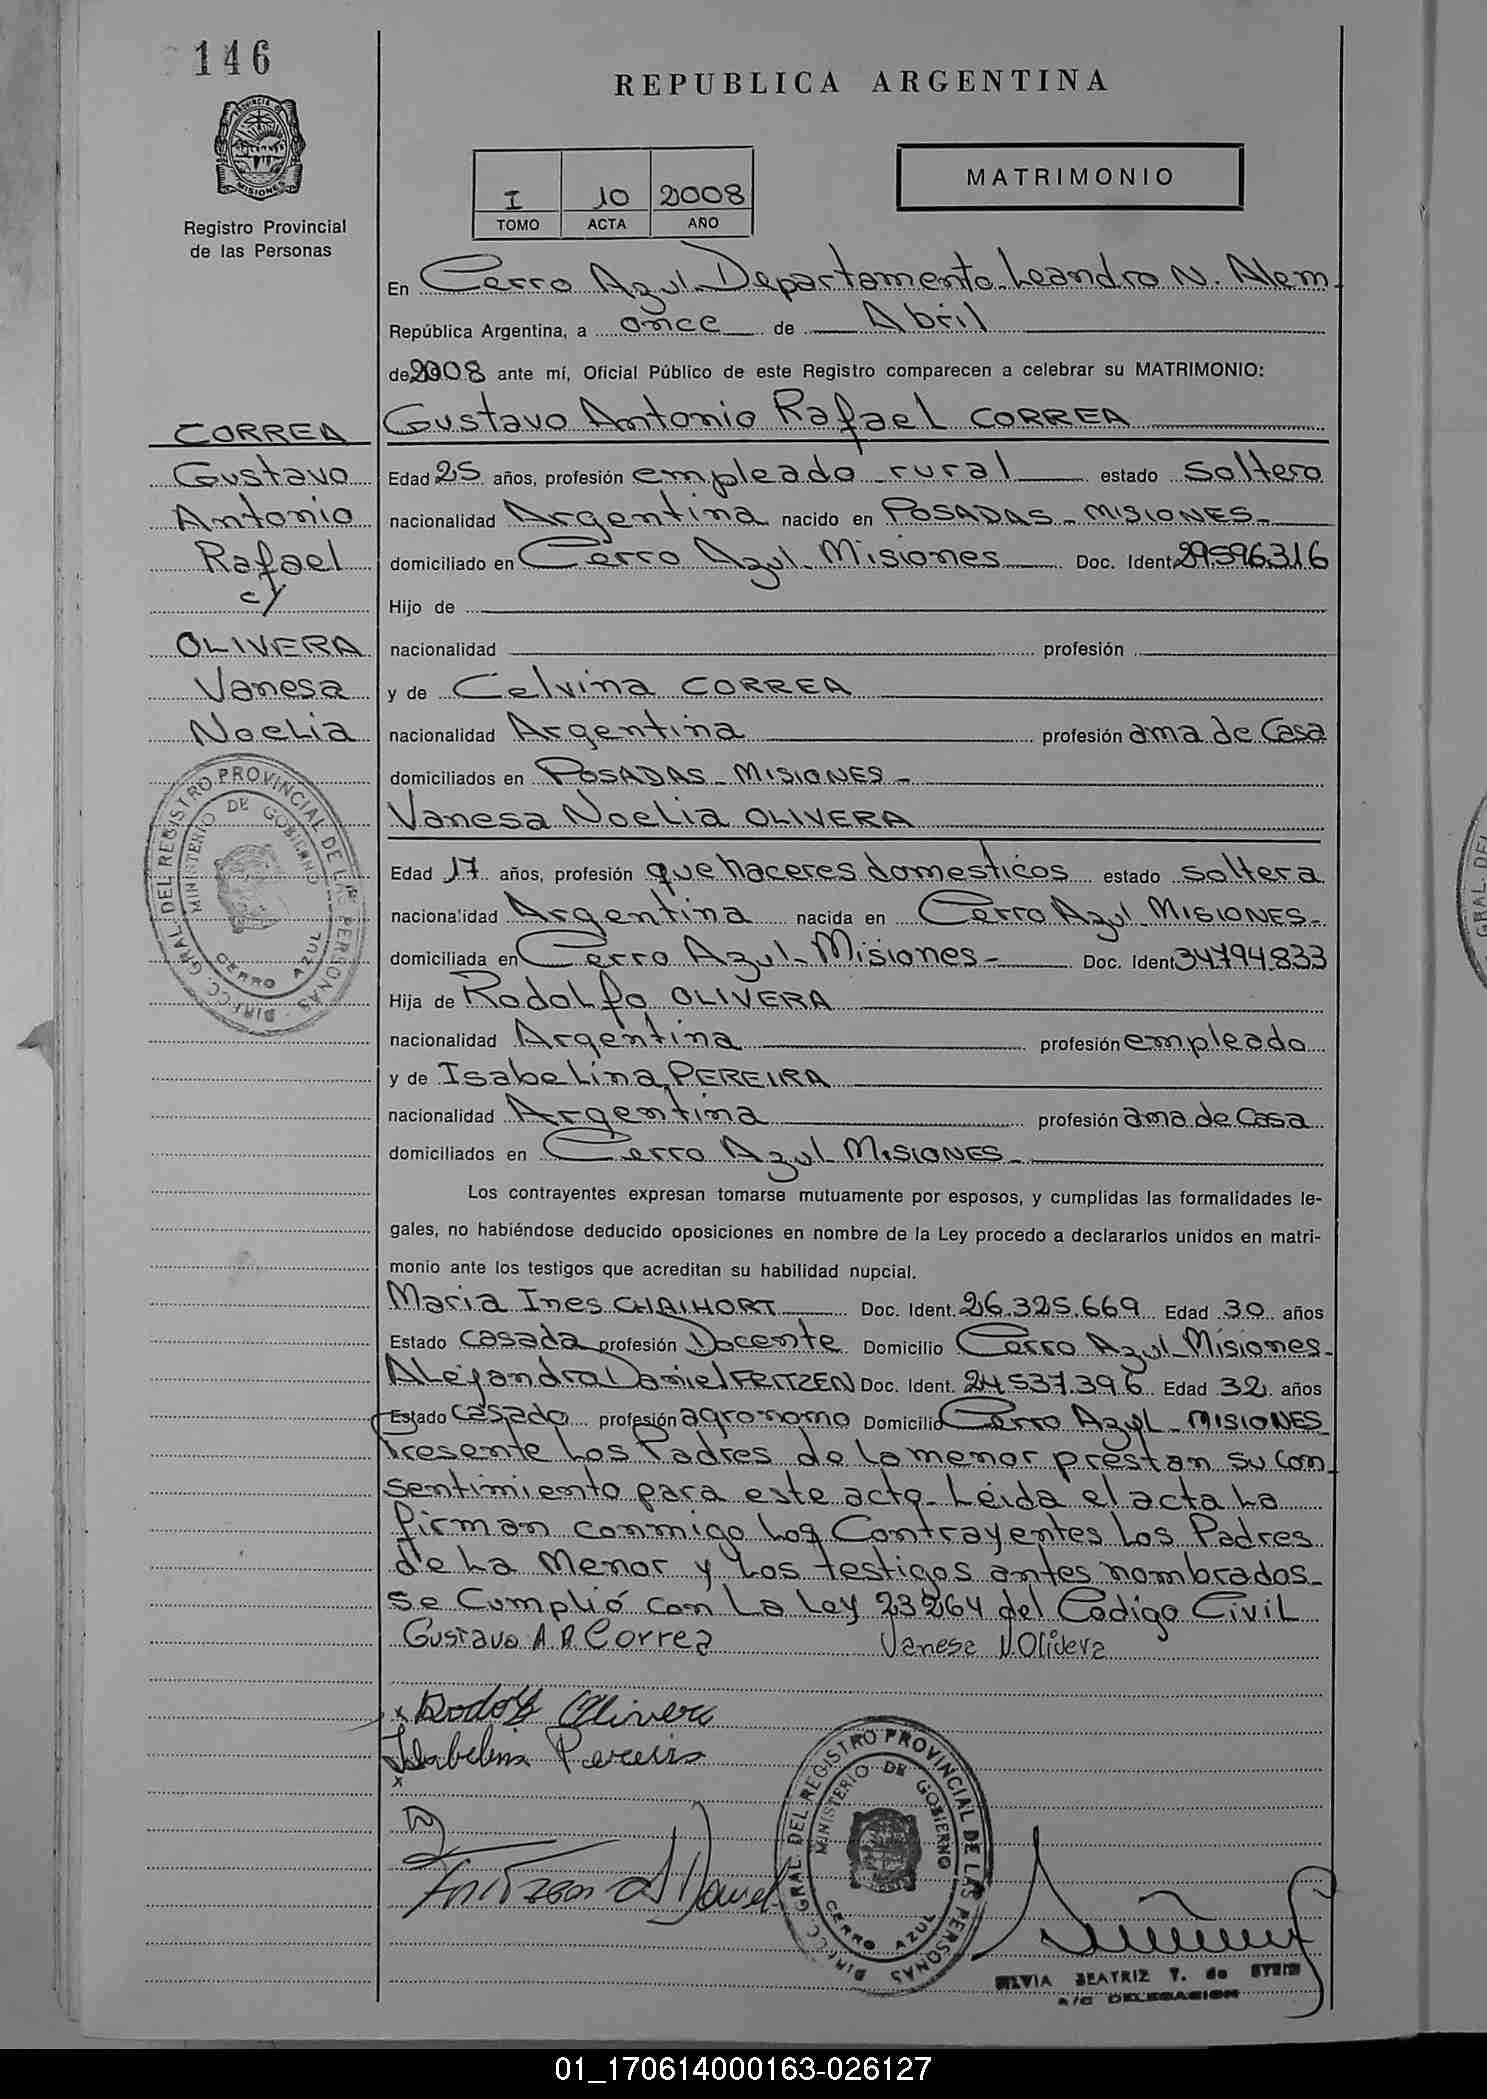 146
REPUBLICA ARGENTINA
PROVINCIA DE
MISIONES
Registro Provincial
de las Personas
I 10 2008
TOMO ACTA AÑO
MATRIMONIO
En Cerro Azul Departamento Leandro N. Alem
República Argentina, a once de Abril
de 2008 ante mí, Oficial Público de este Registro comparecen a celebrar su MATRIMONIO:
Gustavo Antonio Rafael CORREA
CORREA
Gustavo
Antonio
Rafael
c/
OLIVERA
Vanesa
Noelia
Edad 25 años, profesión empleado rural estado soltero
nacionalidad Argentina nacido en POSADAS - MISIONES -
domiciliado en Cerro Azul - Misiones Doc. Ident. 29596316
Hijo de
nacionalidad profesión
y de Celvina CORREA
nacionalidad Argentina profesión ama de Casa
domiciliados en POSADAS - MISIONES -
Vanesa Noelia OLIVERA
Edad 17 años, profesión que haceres domesticos estado soltera
nacionalidad Argentina nacida en Cerro Azul MISIONES -
domiciliada en Cerro Azul - Misiones - Doc. Ident. 34794833
Hija de Rodolfo OLIVERA
nacionalidad Argentina profesión empleado
y de Isabelina PEREIRA
nacionalidad Argentina profesión ama de Casa
domiciliados en Cerro Azul MISIONES -
Los contrayentes expresan tomarse mutuamente por esposos, y cumplidas las formalidades le-
gales, no habiéndose deducido oposiciones en nombre de la Ley procedo a declararlos unidos en matri-
monio ante los testigos que acreditan su habilidad nupcial.
Maria Ines Doc. Ident. 26.325.669 Edad 30 años
Estado casada profesión Docente Domicilio Cerro Azul - Misiones -
Daniel Doc. Ident. 24.537.396 Edad 32 años
Estado casado profesión agronomo Domicilio Cerro Azul - MISIONES
Presente Los Padres de la menor prestan su con
sentimiento para este acto - Leida el acta La
firman conmigo los Contrayentes Los Padres
de La Menor y Los testigos antes nombrados -
se Cumplió con La Ley 23264 del Codigo Civil
Gustavo A. R. Correa Vanesa N. Olivera
x Rodolfo Olivera
Isabelina Pereira
x
DIRECC. GRAL. DEL REGISTRO PROVINCIAL DE LAS PERSONAS
MINISTERIO DE GOBIERNO
CERRO AZUL
DIRECC. GRAL. DEL REGISTRO PROVINCIAL DE LAS PERSONAS
MINISTERIO DE GOBIERNO
CERRO AZUL
SILVIA BEATRIZ T. de STEIN
A/C DELEGACION
01_170614000163-026127